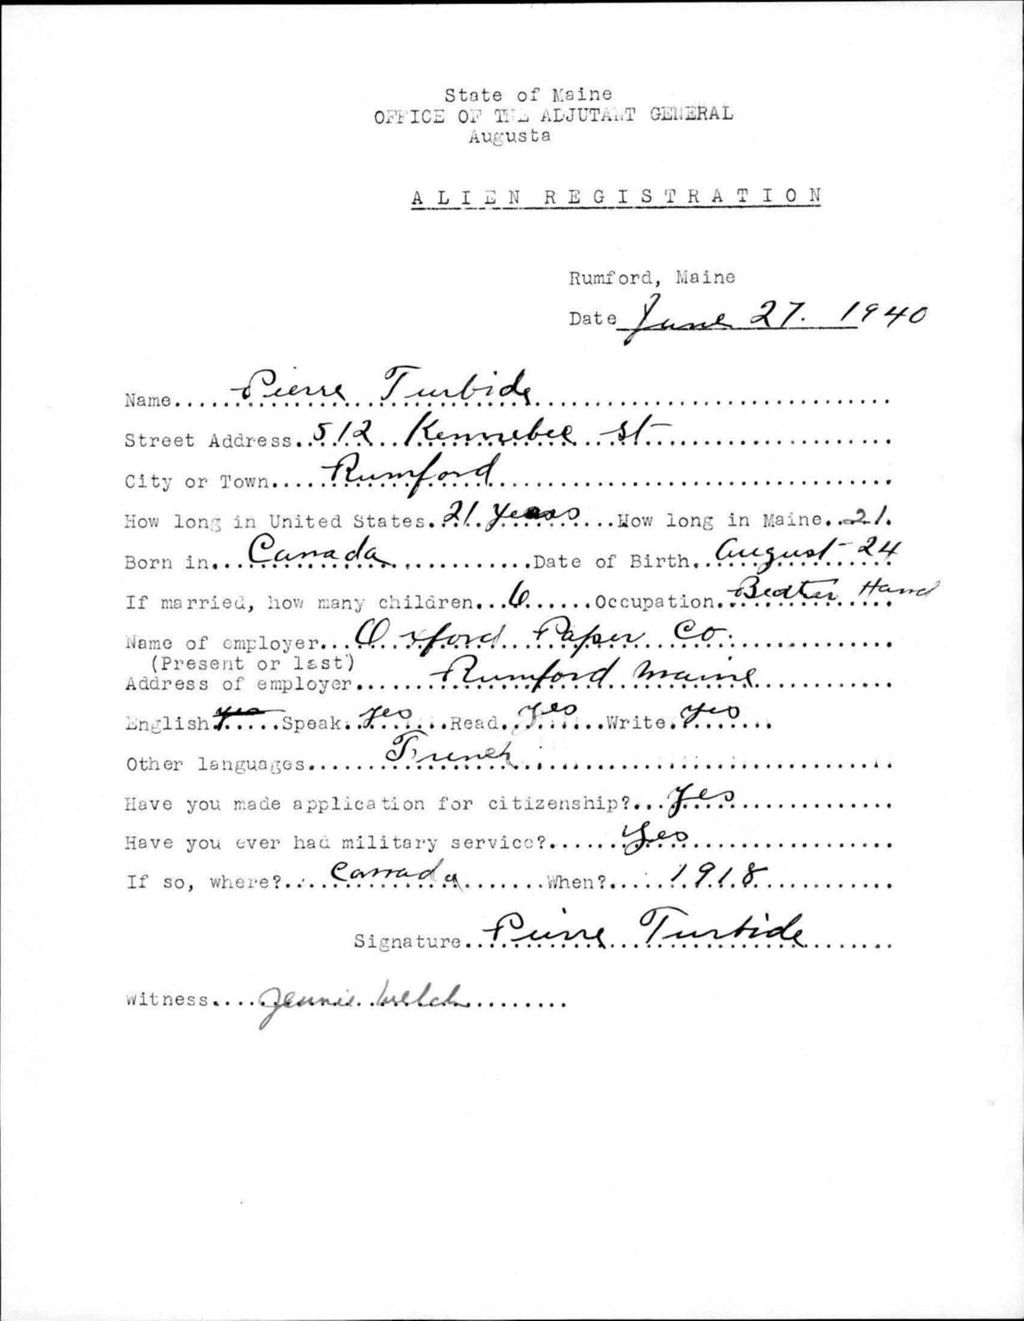 State of Maine
OFFICE OF THE ADJUTANT GENERAL
Augusta
ALIEN REGISTRATION
Rumford, Maine
Date June 27. 1940
Name Pierre Turbide
Street Address 512 Kennebec St
City or Town Rumford
How long in United States 21 Years How long in Maine 21
Born in Canada Date of Birth August 24
If married, how many children 6 Occupation Beater Hand
Name of employer Oxford Paper Co.
(Present or last)
Address of employer Rumford Maine
English yes Speak yes Read yes Write yes
Other languages French
Have you made application for citizenship? Yes
Have you ever had military service? Yes
If so, where? Canada When? 1918
Signature Pierre Turbide
Witness Jennie Welch